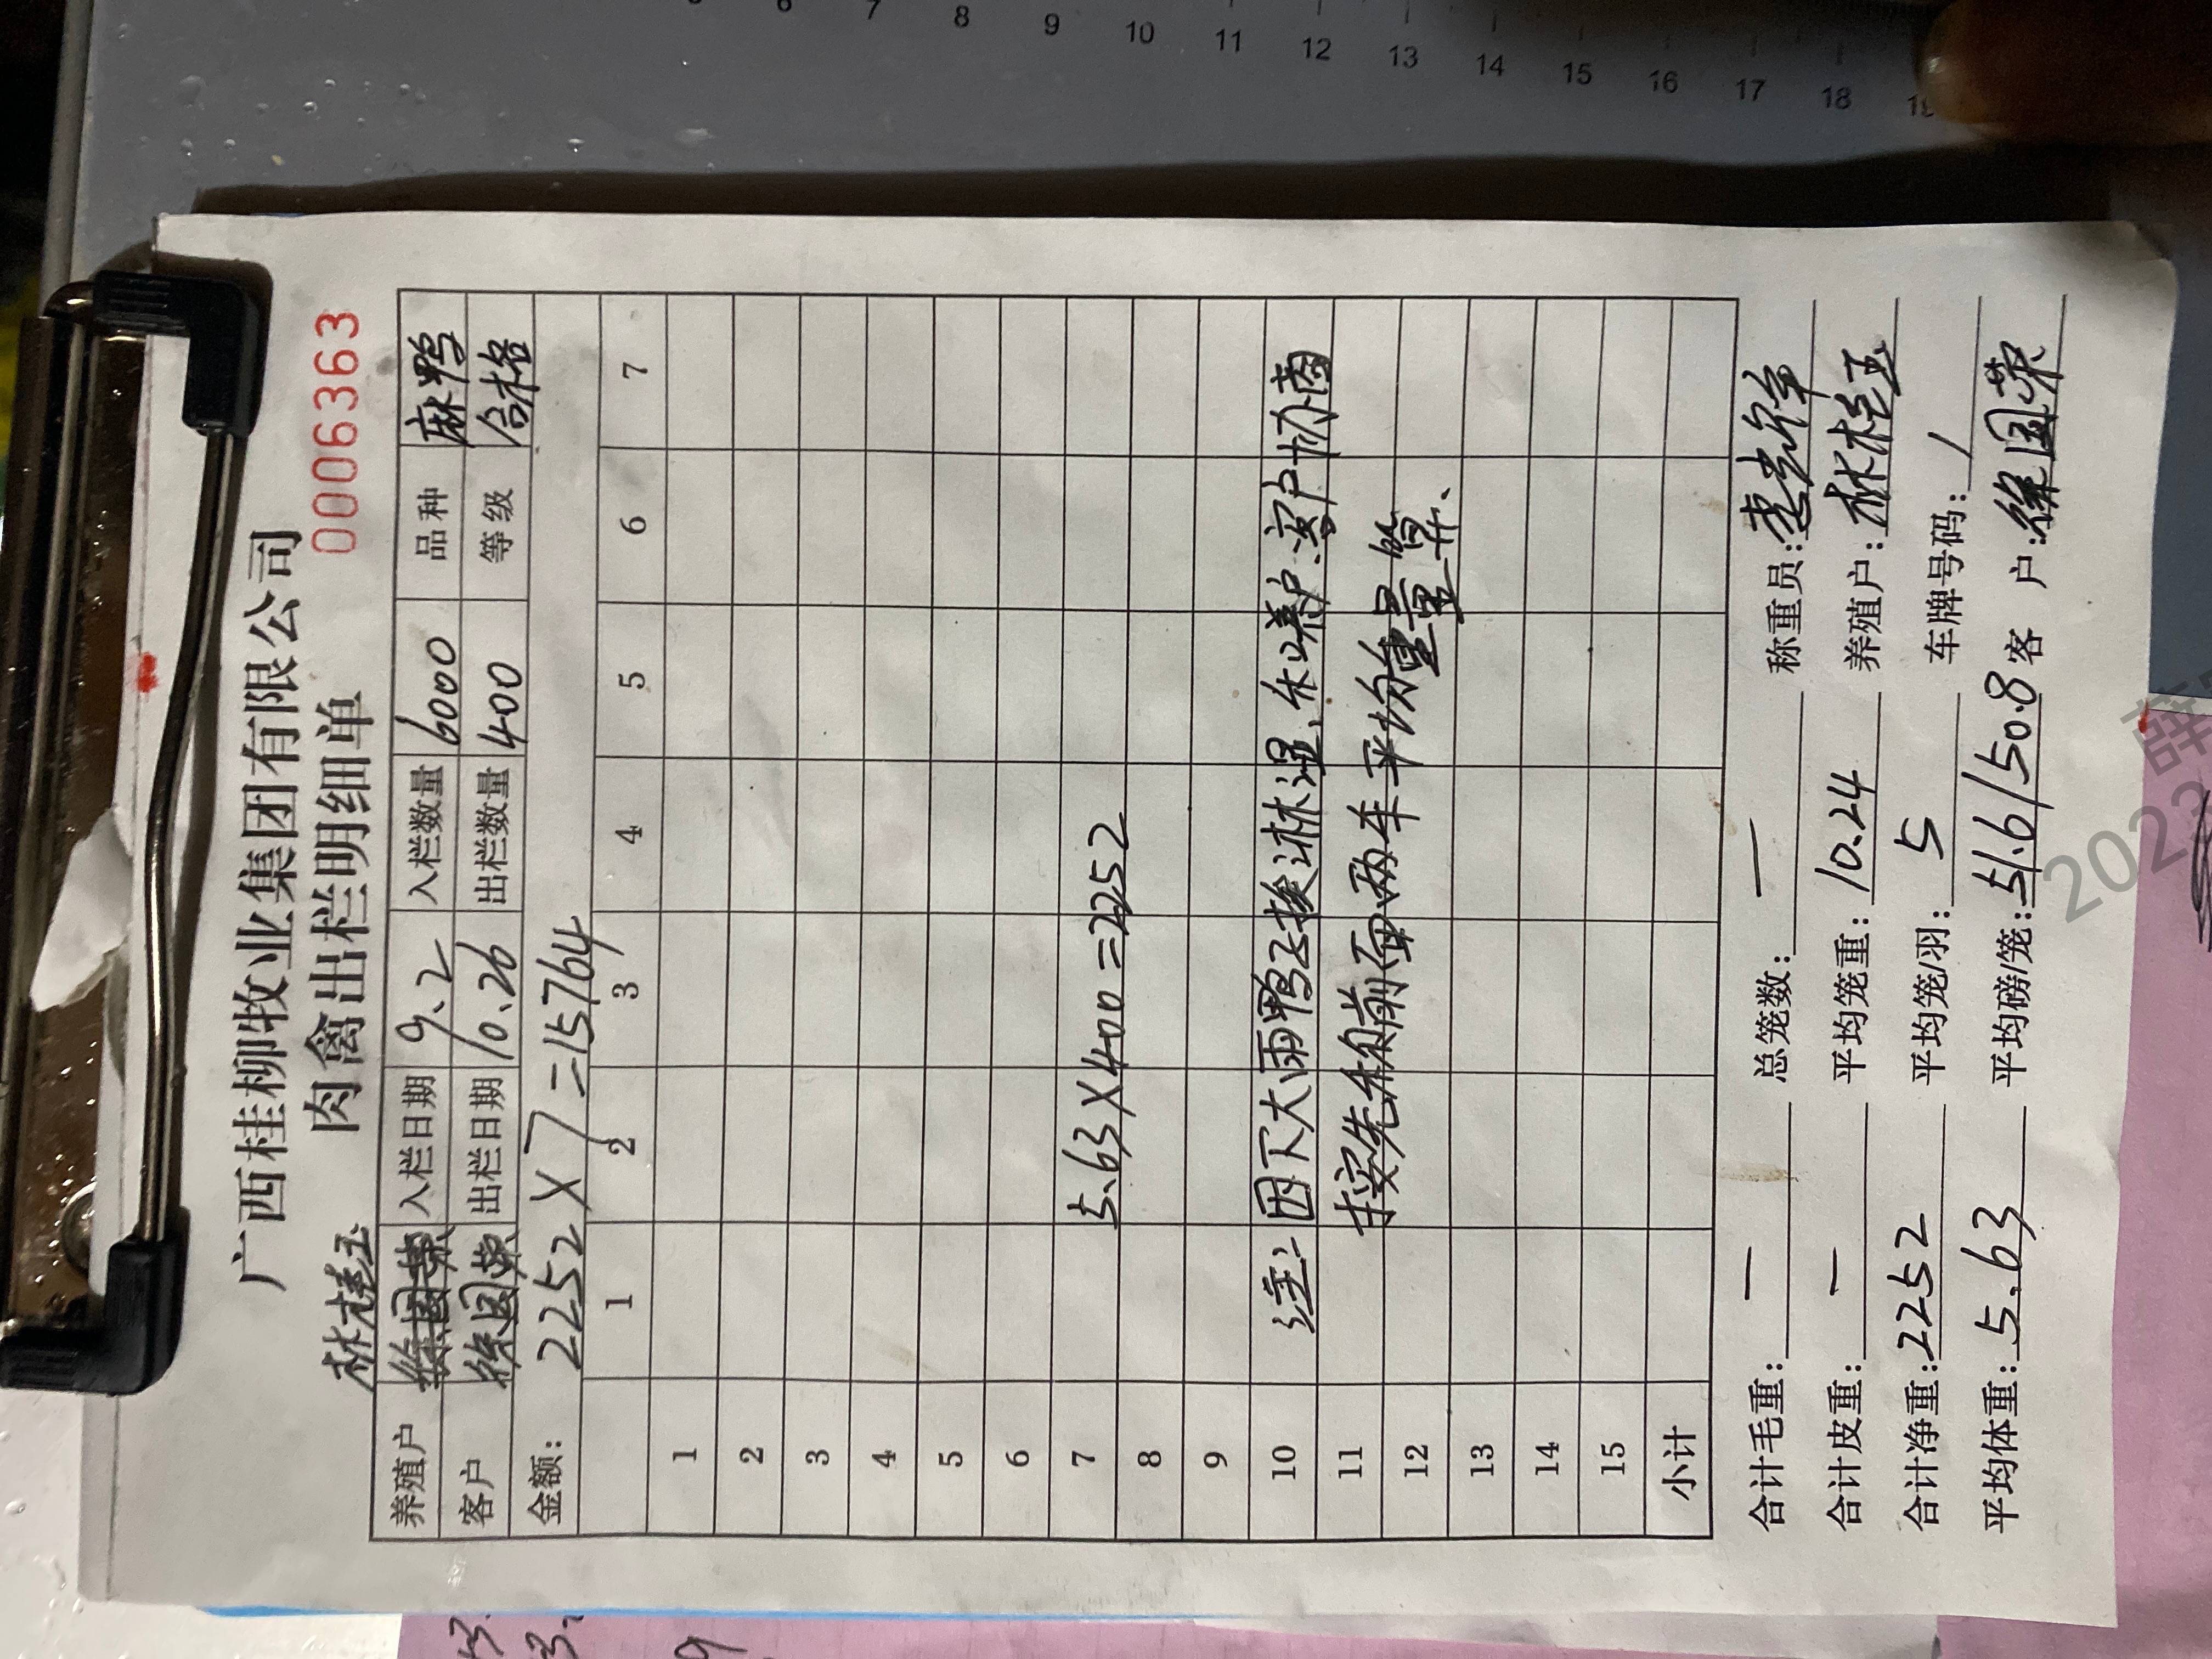 广西桂柳牧业集团有限公司
肉禽出栏明细单
0006363
林桂玉
养殖户 徐国荣 入栏日期 9.2 入栏数量 6000 品种 麻鸭
客户 徐国荣 出栏日期 10.26 出栏数量 400 等级 合格
金额: 2252×7=15764
1 2 3 4 5 6 7
1
2
3
4
5
6
7 5.63×400=2252
8
9
10 注: 因下大雨鸭子挨淋湿、和养户.客户协商
11 按先称前面两车平均重量算.
12
13
14
15
小计
合计毛重: — 总笼数: — 称重员:
合计皮重: — 平均笼重: 10.24 养殖户: 林桂玉
合计净重: 2252 平均笼/羽: 5 车牌号码: /
平均体重: 5.63 平均磅/笼: 51.6/50.8 客户: 徐国荣
5 6 7 8 9 10 11 12 13 14 15 16 17 18 19
薛
2023